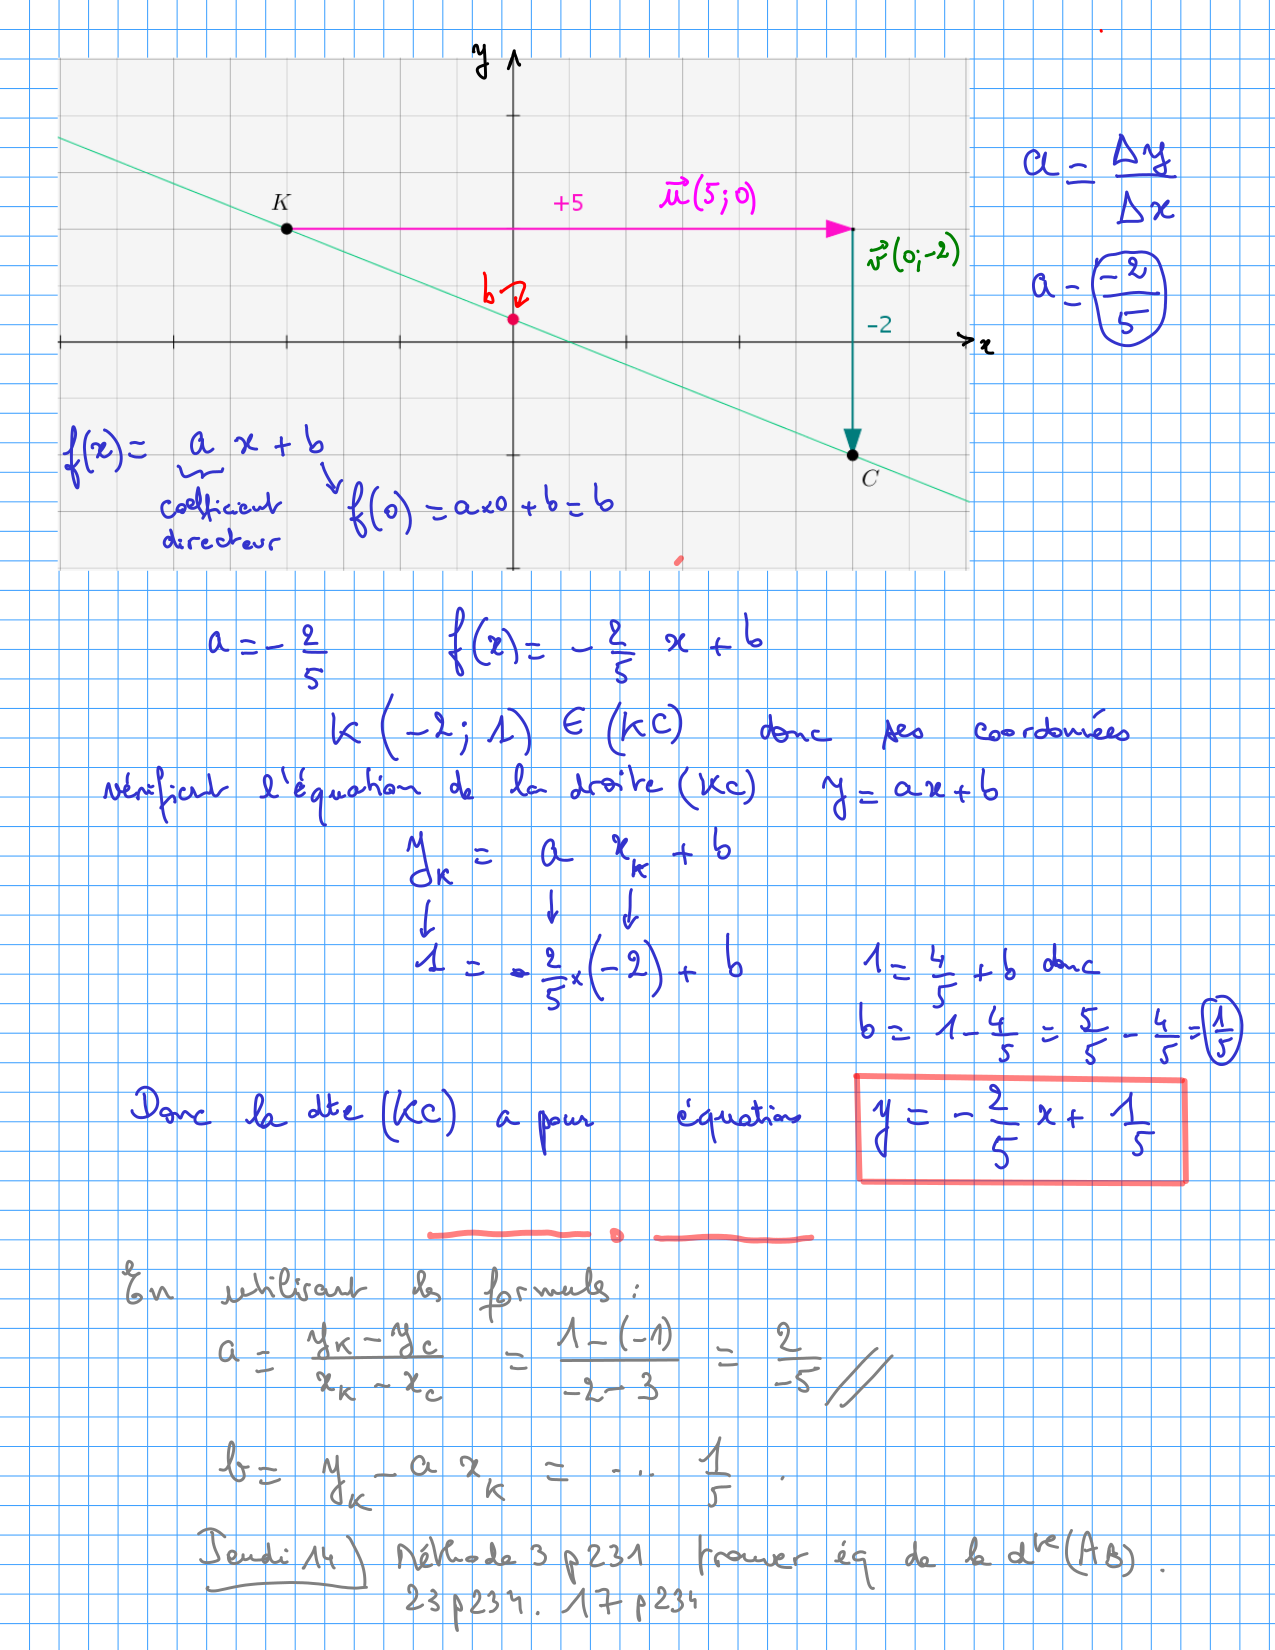 y
K
+5
u⃗(5;0)
v⃗(0;-2)
b
-2
x
C
a = Δy/Δx
a = -2/5
f(x) = a x + b
coefficient
directeur
f(0) = a×0 + b = b
a = - 2/5 f(x) = - 2/5 x + b
K (-2; 1) ∈ (KC) donc ses coordonnées
vérifient l'équation de la droite (KC) y = ax + b
y_K = a x_K + b
1 = - 2/5 × (-2) + b
1 = 4/5 + b donc
b = 1 - 4/5 = 5/5 - 4/5 = 1/5
Donc la dte (KC) a pour équation y = - 2/5 x + 1/5
En utilisant les formules :
a = (y_K - y_C)/(x_K - x_C) = (1-(-1))/(-2-3) = 2/-5 //
b = y_K - a x_K = ... 1/5 .
Jeudi 14) Méthode 3 p 231 trouver éq de la dte (AB).
23 p 234. 17 p 234